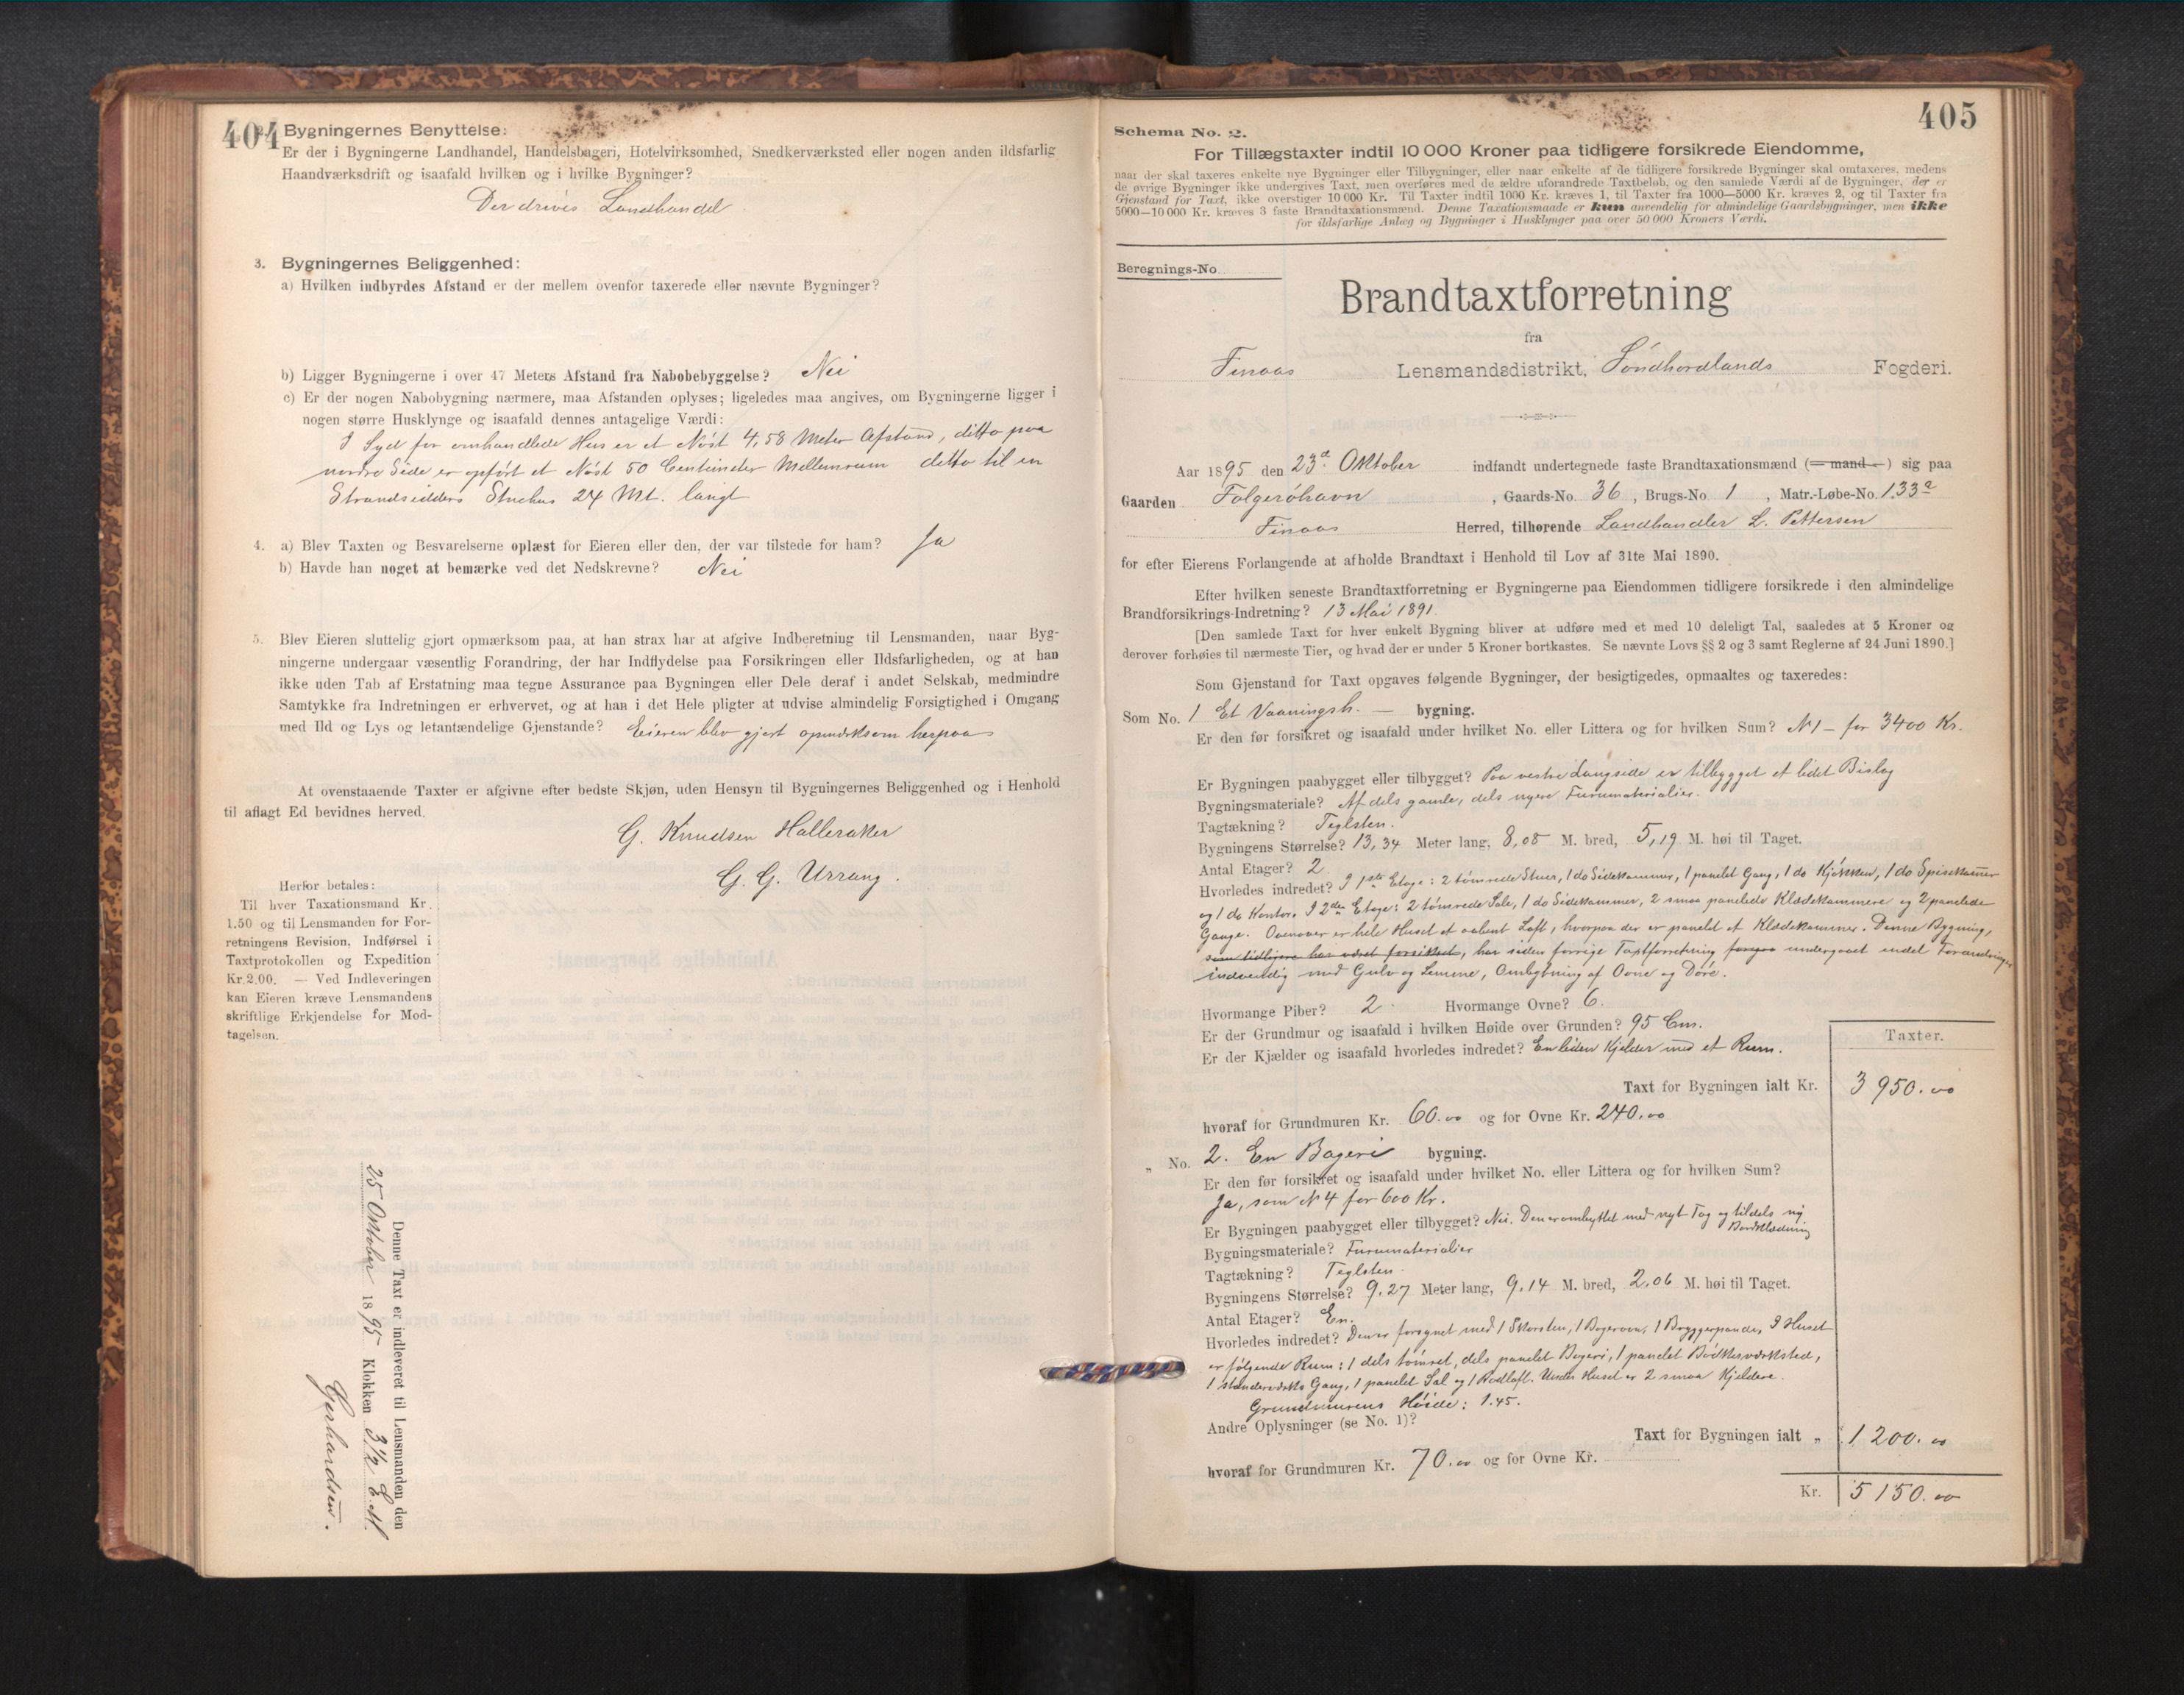 404
2. Bygningernes Benyttelse:
Er der i Bygningerne Landhandel, Handelsbageri, Hotelvirksomhed, Snedkerværksted eller nogen anden ildsfarlig
Haandværksdrift og isaafald hvilken og i hvilke Bygninger?
Der drives Landhandel
3. Bygningernes Beliggenhed:
a) Hvilken indbyrdes Afstand er der mellem ovenfor taxerede eller nævnte Bygninger?
b) Ligger Bygningerne i over 47 Meters Afstand fra Nabobebyggelse? Nei
c) Er der nogen Nabobygning nærmere, maa Afstanden oplyses; ligeledes maa angives, om Bygningerne ligger i
nogen større Husklynge og isaafald dennes antagelige Værdi:
I Syd for omhandlede Hus er et Nøst 4,58 Meter Afstand, ditto paa
nordre Side er opført et Nøst 50 Centimeter Mellemrum ditto til en
Strandsidders Stuehus 24 Mt. langt
4. a) Blev Taxten og Besvarelserne oplæst for Eieren eller den, der var tilstede for ham? Ja
b) Havde han noget at bemærke ved det Nedskrevne? Nei
5. Blev Eieren sluttelig gjort opmærksom paa, at han strax har at afgive Indberetning til Lensmanden, naar Byg-
ningerne undergaar væsentlig Forandring, der har Indflydelse paa Forsikringen eller Ildsfarligheden, og at han
ikke uden Tab af Erstatning maa tegne Assurance paa Bygningen eller Dele deraf i andet Selskab, medmindre
Samtykke fra Indretningen er erhvervet, og at han i det Hele pligter at udvise almindelig Forsigtighed i Omgang
med Ild og Lys og letantændelige Gjenstande? Eieren blev gjort opmærksom herpaa
At ovenstaaende Taxter er afgivne efter bedste Skjøn, uden Hensyn til Bygningernes Beliggenhed og i Henhold
til aflagt Ed bevidnes herved.
G. Knudsen Halleraker
G. G. Urrang.
Herfor betales:
Til hver Taxationsmand Kr.
1.50 og til Lensmanden for For-
retningens Revision, Indførsel i
Taxtprotokollen og Expedition
Kr. 2.00. — Ved Indleveringen
kan Eieren kræve Lensmandens
skriftlige Erkjendelse for Mod-
tagelsen.
Denne Taxt er indleveret til Lensmanden den
25 Oktober 1895 Klokken 3 1/2 E. M.
Gerhardsen.
405
Schema No. 2.
For Tillægstaxter indtil 10 000 Kroner paa tidligere forsikrede Eiendomme,
naar der skal taxeres enkelte nye Bygninger eller Tilbygninger, eller naar enkelte af de tidligere forsikrede Bygninger skal omtaxeres, medens
de øvrige Bygninger ikke undergives Taxt, men overføres med de ældre uforandrede Taxtbeløb, og den samlede Værdi af de Bygninger, der er
Gjenstand for Taxt, ikke overstiger 10 000 Kr. Til Taxter indtil 1000 Kr. kræves 1, til Taxter fra 1000—5000 Kr. kræves 2, og til Taxter fra
5000—10 000 Kr. kræves 3 faste Brandtaxationsmænd. Denne Taxationsmaade er kun anvendelig for almindelige Gaardsbygninger, men ikke
for ildsfarlige Anlæg og Bygninger i Husklynger paa over 50 000 Kroners Værdi.
Beregnings-No.
Brandtaxtforretning
fra
Finaas Lensmandsdistrikt, Søndhordlands Fogderi.
Aar 1895 den 23d Oktober indfandt undertegnede faste Brandtaxationsmænd (— mand —) sig paa
Gaarden Folgerøhavn, Gaards-No. 36, Brugs-No. 1, Matr.-Løbe-No. 133a
Finaas Herred, tilhørende Landhandler L. Pettersen
for efter Eierens Forlangende at afholde Brandtaxt i Henhold til Lov af 31te Mai 1890.
Efter hvilken seneste Brandtaxtforretning er Bygningerne paa Eiendommen tidligere forsikrede i den almindelige
Brandforsikrings-Indretning? 13 Mai 1891.
[Den samlede Taxt for hver enkelt Bygning bliver at udføre med et med 10 deleligt Tal, saaledes at 5 Kroner og
derover forhøies til nærmeste Tier, og hvad der er under 5 Kroner bortkastes. Se nævnte Lovs §§ 2 og 3 samt Reglerne af 24 Juni 1890.]
Som Gjenstand for Taxt opgaves følgende Bygninger, der besigtigedes, opmaaltes og taxeredes:
Som No. 1 Et Vaaningsh. — bygning.
Er den før forsikret og isaafald under hvilket No. eller Littera og for hvilken Sum? N 1 – for 3400 Kr.
Er Bygningen paabygget eller tilbygget? Paa vestre Langside er tilbygget et lidet Bislag
Bygningsmateriale? Af dels gamle, dels nyere Furumaterialier.
Tagtækning? Teglsten.
Bygningens Størrelse? 13,34 Meter lang, 8,08 M. bred, 5,19 M. høi til Taget.
Antal Etager? 2
Hvorledes indredet? I 1ste Etage: 2 tømrede Stuer, 1 do Sidekammer, 1 panelet Gang, 1 do Kjøkken, 1 do Spisekammer
og 1 do Kontor. I 2den Etage: 2 tømrede Sale, 1 do Sidekammer, 2 smaa panelede Klædekammere og 2 panelede
Gange. Ovenover er hele Huset et aabent Loft, hvorpaa der er panelet et Klædekammer. Denne Bygning,
som tidligere har været forsikket, har siden forrige Taxtforretning undergaaet endel Forandringer
indvendig med Gulv og Lemme, Ombytning af Ovne og Døre.
Hvormange Piber? 2. Hvormange Ovne? 6.
Er der Grundmur og isaafald i hvilken Høide over Grunden? 95 Cm.
Er der Kjælder og isaafald hvorledes indredet? En liden Kjelder med et Rum.
Taxter.
Taxt for Bygningen ialt Kr. 3 950.00
hvoraf for Grundmuren Kr. 60.00 og for Ovne Kr. 240.00
" No. 2. En Bageri bygning.
Er den før forsikret og isaafald under hvilket No. eller Littera og for hvilken Sum?
Ja, som N 4 for 600 Kr.
Er Bygningen paabygget eller tilbygget? Nei. Den er ombyttet med nyt Tag og tildels ny
Bordklædning
Bygningsmateriale? Furumaterialier
Tagtækning? Teglsten.
Bygningens Størrelse? 9.27 Meter lang, 9.14 M. bred, 2,06 M. høi til Taget.
Antal Etager? En.
Hvorledes indredet? Den er forsynet med 1 Skorsten, 1 Bagerovn, 1 Bryggerpande, I Huset
er følgende Rum: 1 dels tømret, dels panelet Bageri, 1 panelet Bødkerværksted,
1 stenderværks Gang, 1 panelet Sal og 1 Rodloft. Under Huset er 2 smaa Kjeldere.
Grundmurens Høide: 1.45.
Andre Oplysninger (se No. 1)?
Taxt for Bygningen ialt " 1 200.00
hvoraf for Grundmuren Kr. 70.00 og for Ovne Kr.
Kr. 5 150.00